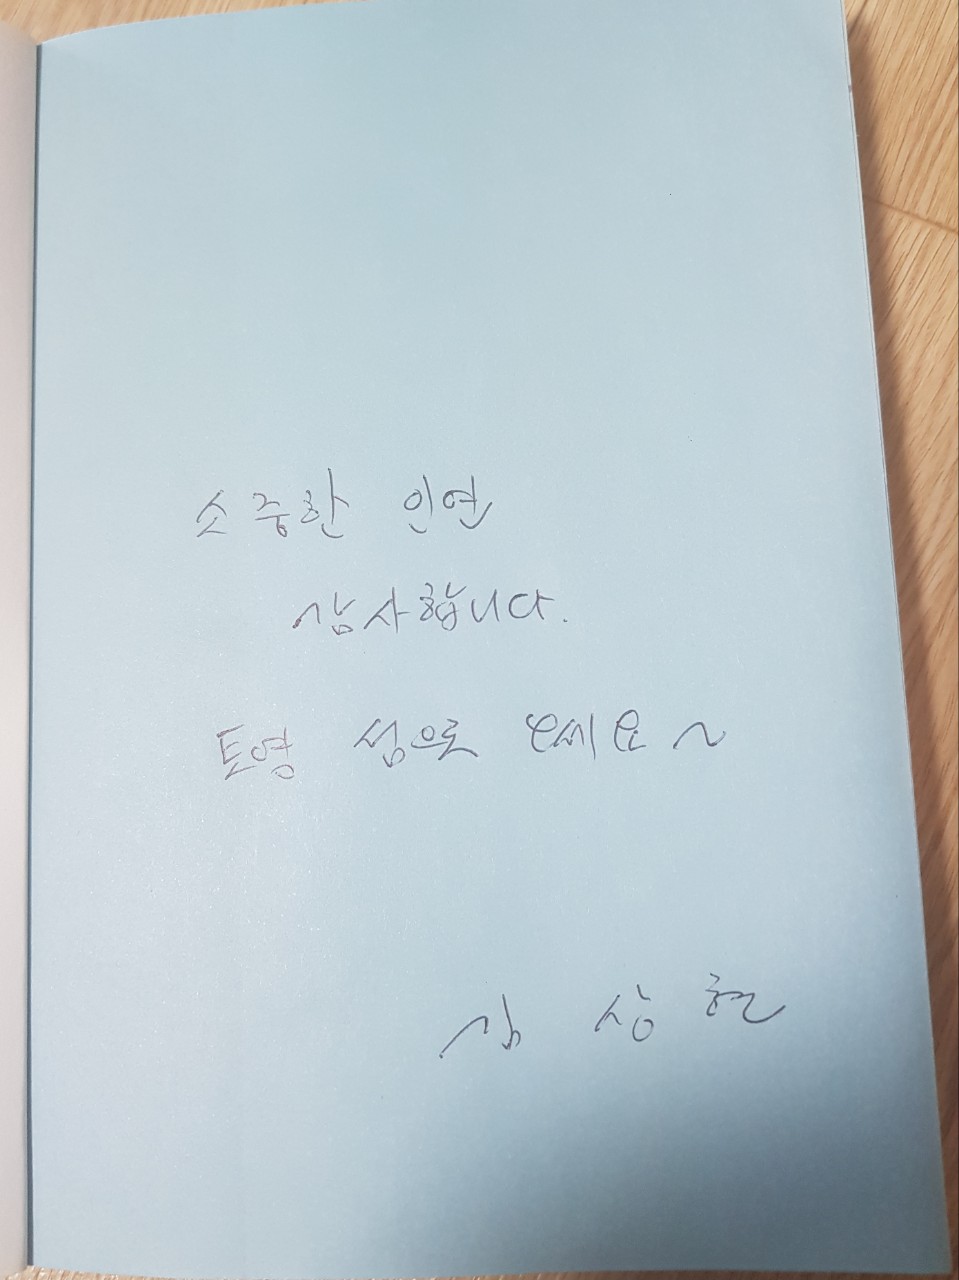 소중한 인연
감사합니다.
토영 섬으로 오세요~
김 상 현